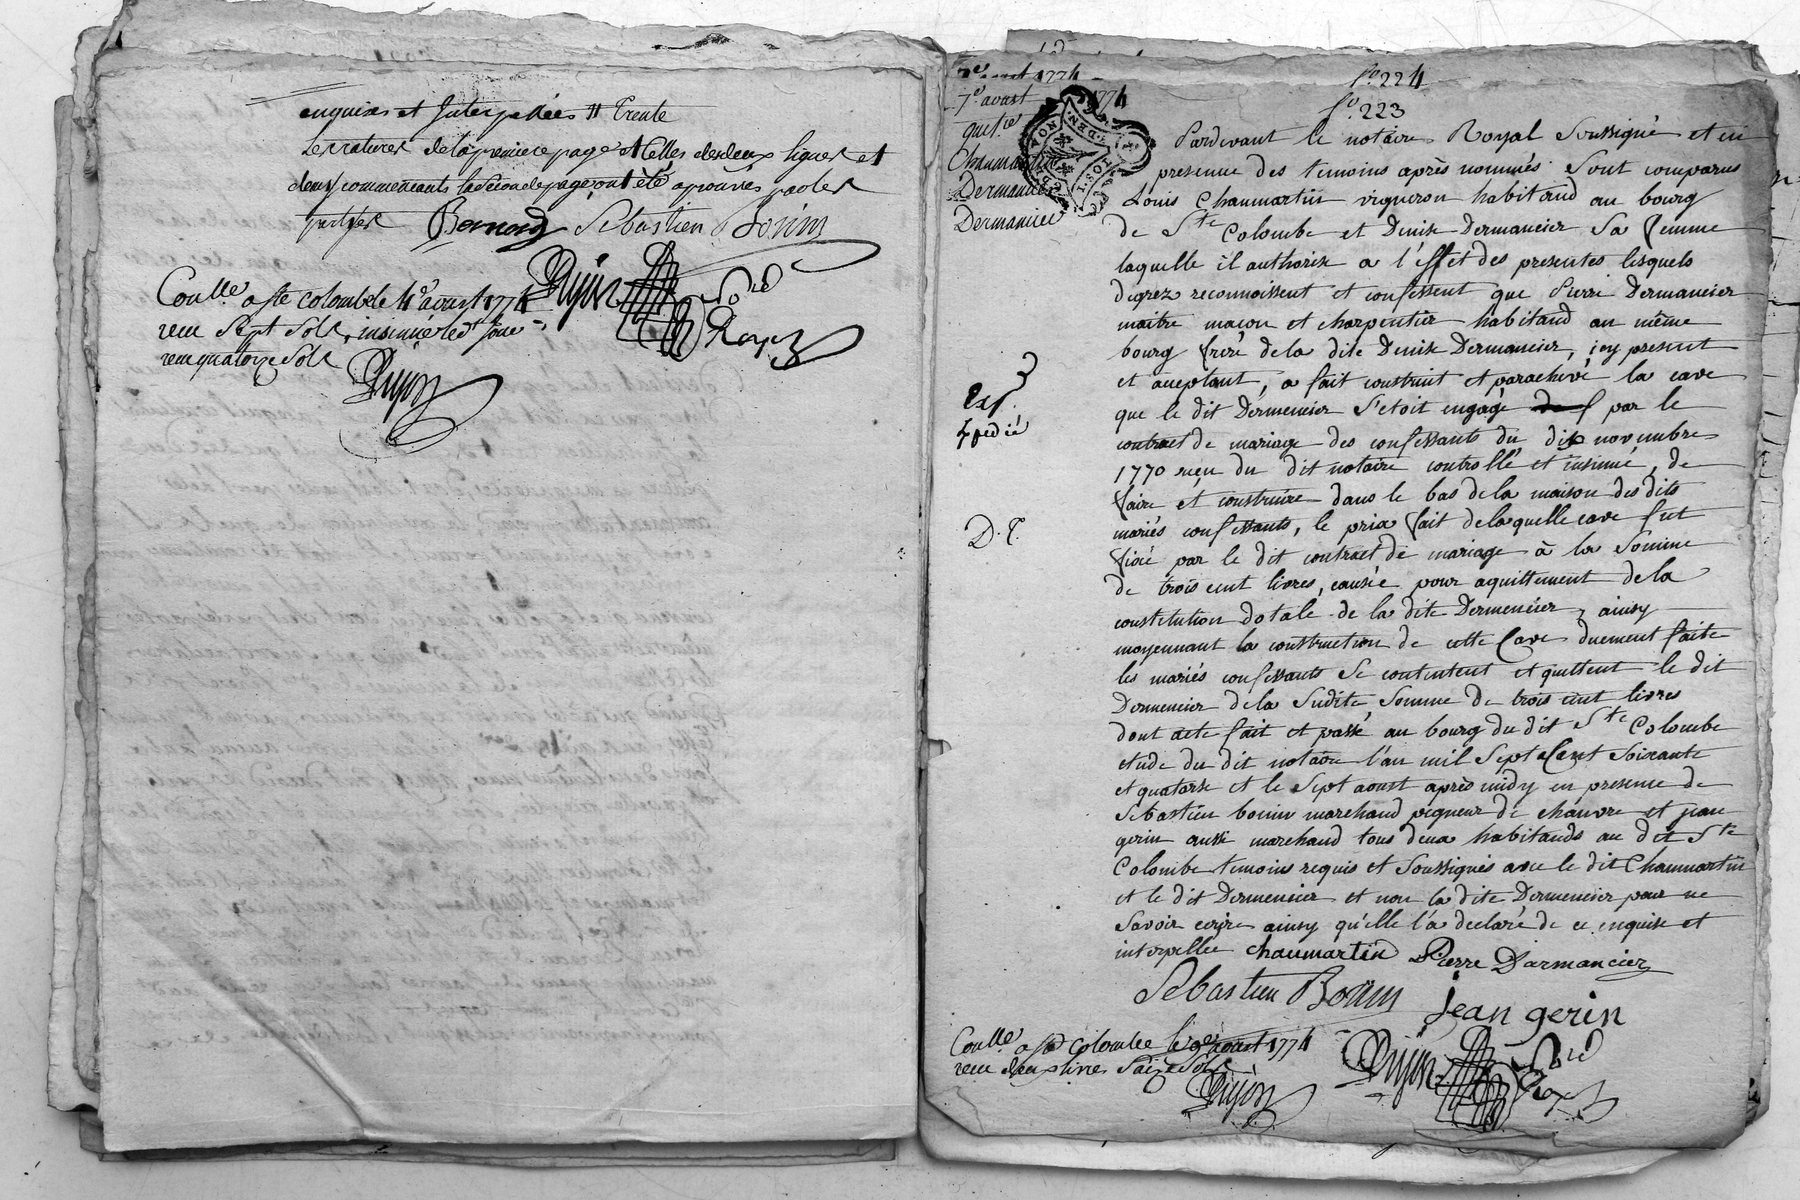 enquises et Interpellées // Trente
les ratures de la premiere page et Celles des deux lignes et
demy commencants la seconde page ont été aprouvés par les
parties Bernard Sebastien Bonin
Dijon No.re Royal
Con.lle a s.te colombe le 4.e aoust 1774
reçu Sept Sols, insinué led. jour
reçu quatorze Sols
Dijon
aoust 1774
7.e aoust 1774
quit.ce
Chaumartin
Dermancier
Dermancier
f.o 224
f.o 223
Pardevant le notaire Royal Soussigné et en
presence des temoins après nommés Sont comparus
Louis Chaumartin vigneron habitand au bourg
de S.te Colombe et Denise Dermancier Sa femme
laquelle il authorise a l'effet des presentes lesquels
degrez reconnoissent et confessent que Pierre Dermancier
maitre maçon et charpentier habitand au même
bourg frere de la dite Denise Dermancier, icy present
et acceptant, a fait construit et parachevé la cave
que le dit Dermencier S'etoit engagé par le
contract de mariage des confessants du dix novembre
1770 reçu du dit notaire controllé et insinué, de
faire et construire dans le bas de la maison des dits
mariés confessants, le prix fait de laquelle cave fut
fixé par le dit contract de mariage à la Somme
de trois cent livres, causée pour aquittement de la
constitution dotale de la dite Dermencier, ainsy
moyennant la construction de cette Cave duement faite
les mariés confessants Se contentent et quittent le dit
Dermencier de la Sudite Somme de trois cent livres
dont acte fait et passé au bourg du dit S.te Colombe
etude du dit notaire l'an mil Sept Cent Soixante
et quatorze et le Sept aoust après midy en presence de
Sebastien bonin marchand peigneur de chanvre et jean
gerin aussi marchand tous deux habitands au dit S.te
Colombe temoins requis et Soussignés avec le dit Chaumartin
et le dit Dermencier et non la dite Dermencier pour ne
Savoir ecrire ainsy qu'elle l'a declaré de ce enquise et
interpellée chaumartin Pierre Darmancier
Sebastien Bonin jean gerin
Exp.
pedié
D. T.
Con.lle a s.te colombe le aoust 1774
reçu deux livres Saize Sols
Dijon
Dijon No.re Roy